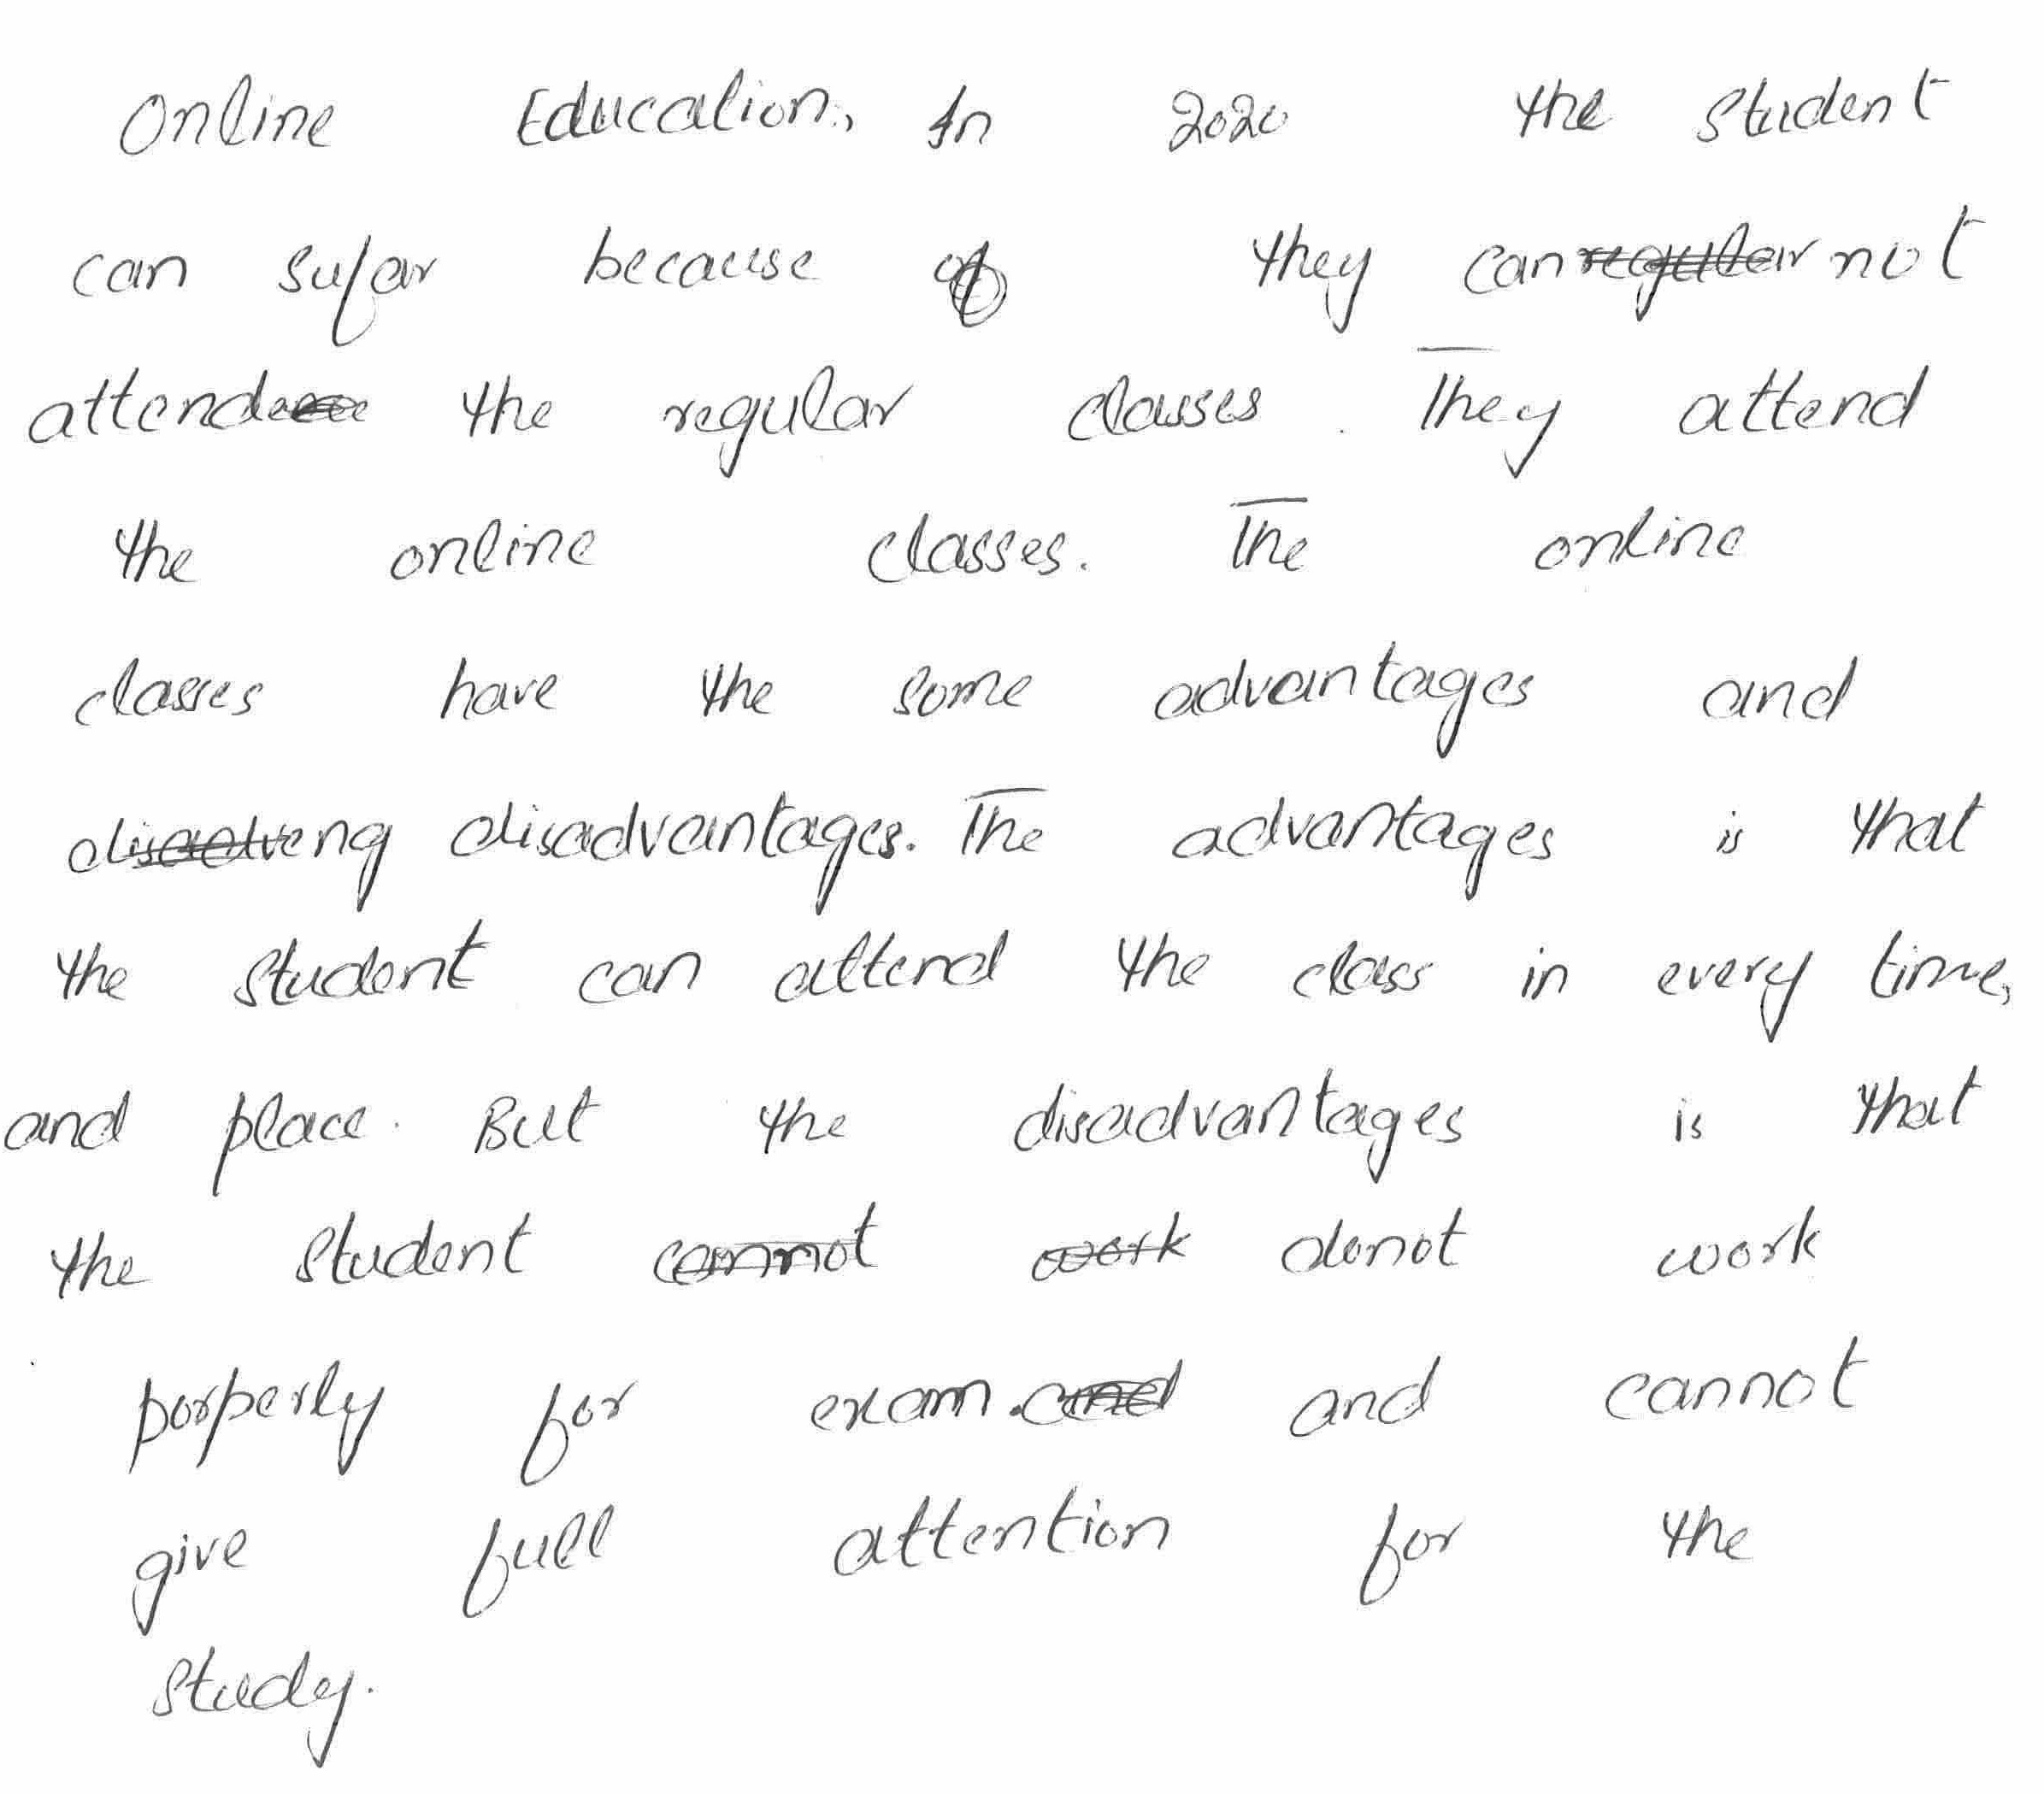 Online Education, In 2020 the student
can sufar because they can not
attend the regular classes. They attend
the online classes. The online
classes have the some advantages and
disadvantages. The advantages is that
the student can attend the class in every time,
and place. But the disadvantages is that
the student donot work
porperly for exam. and cannot
give full attention for the
study.